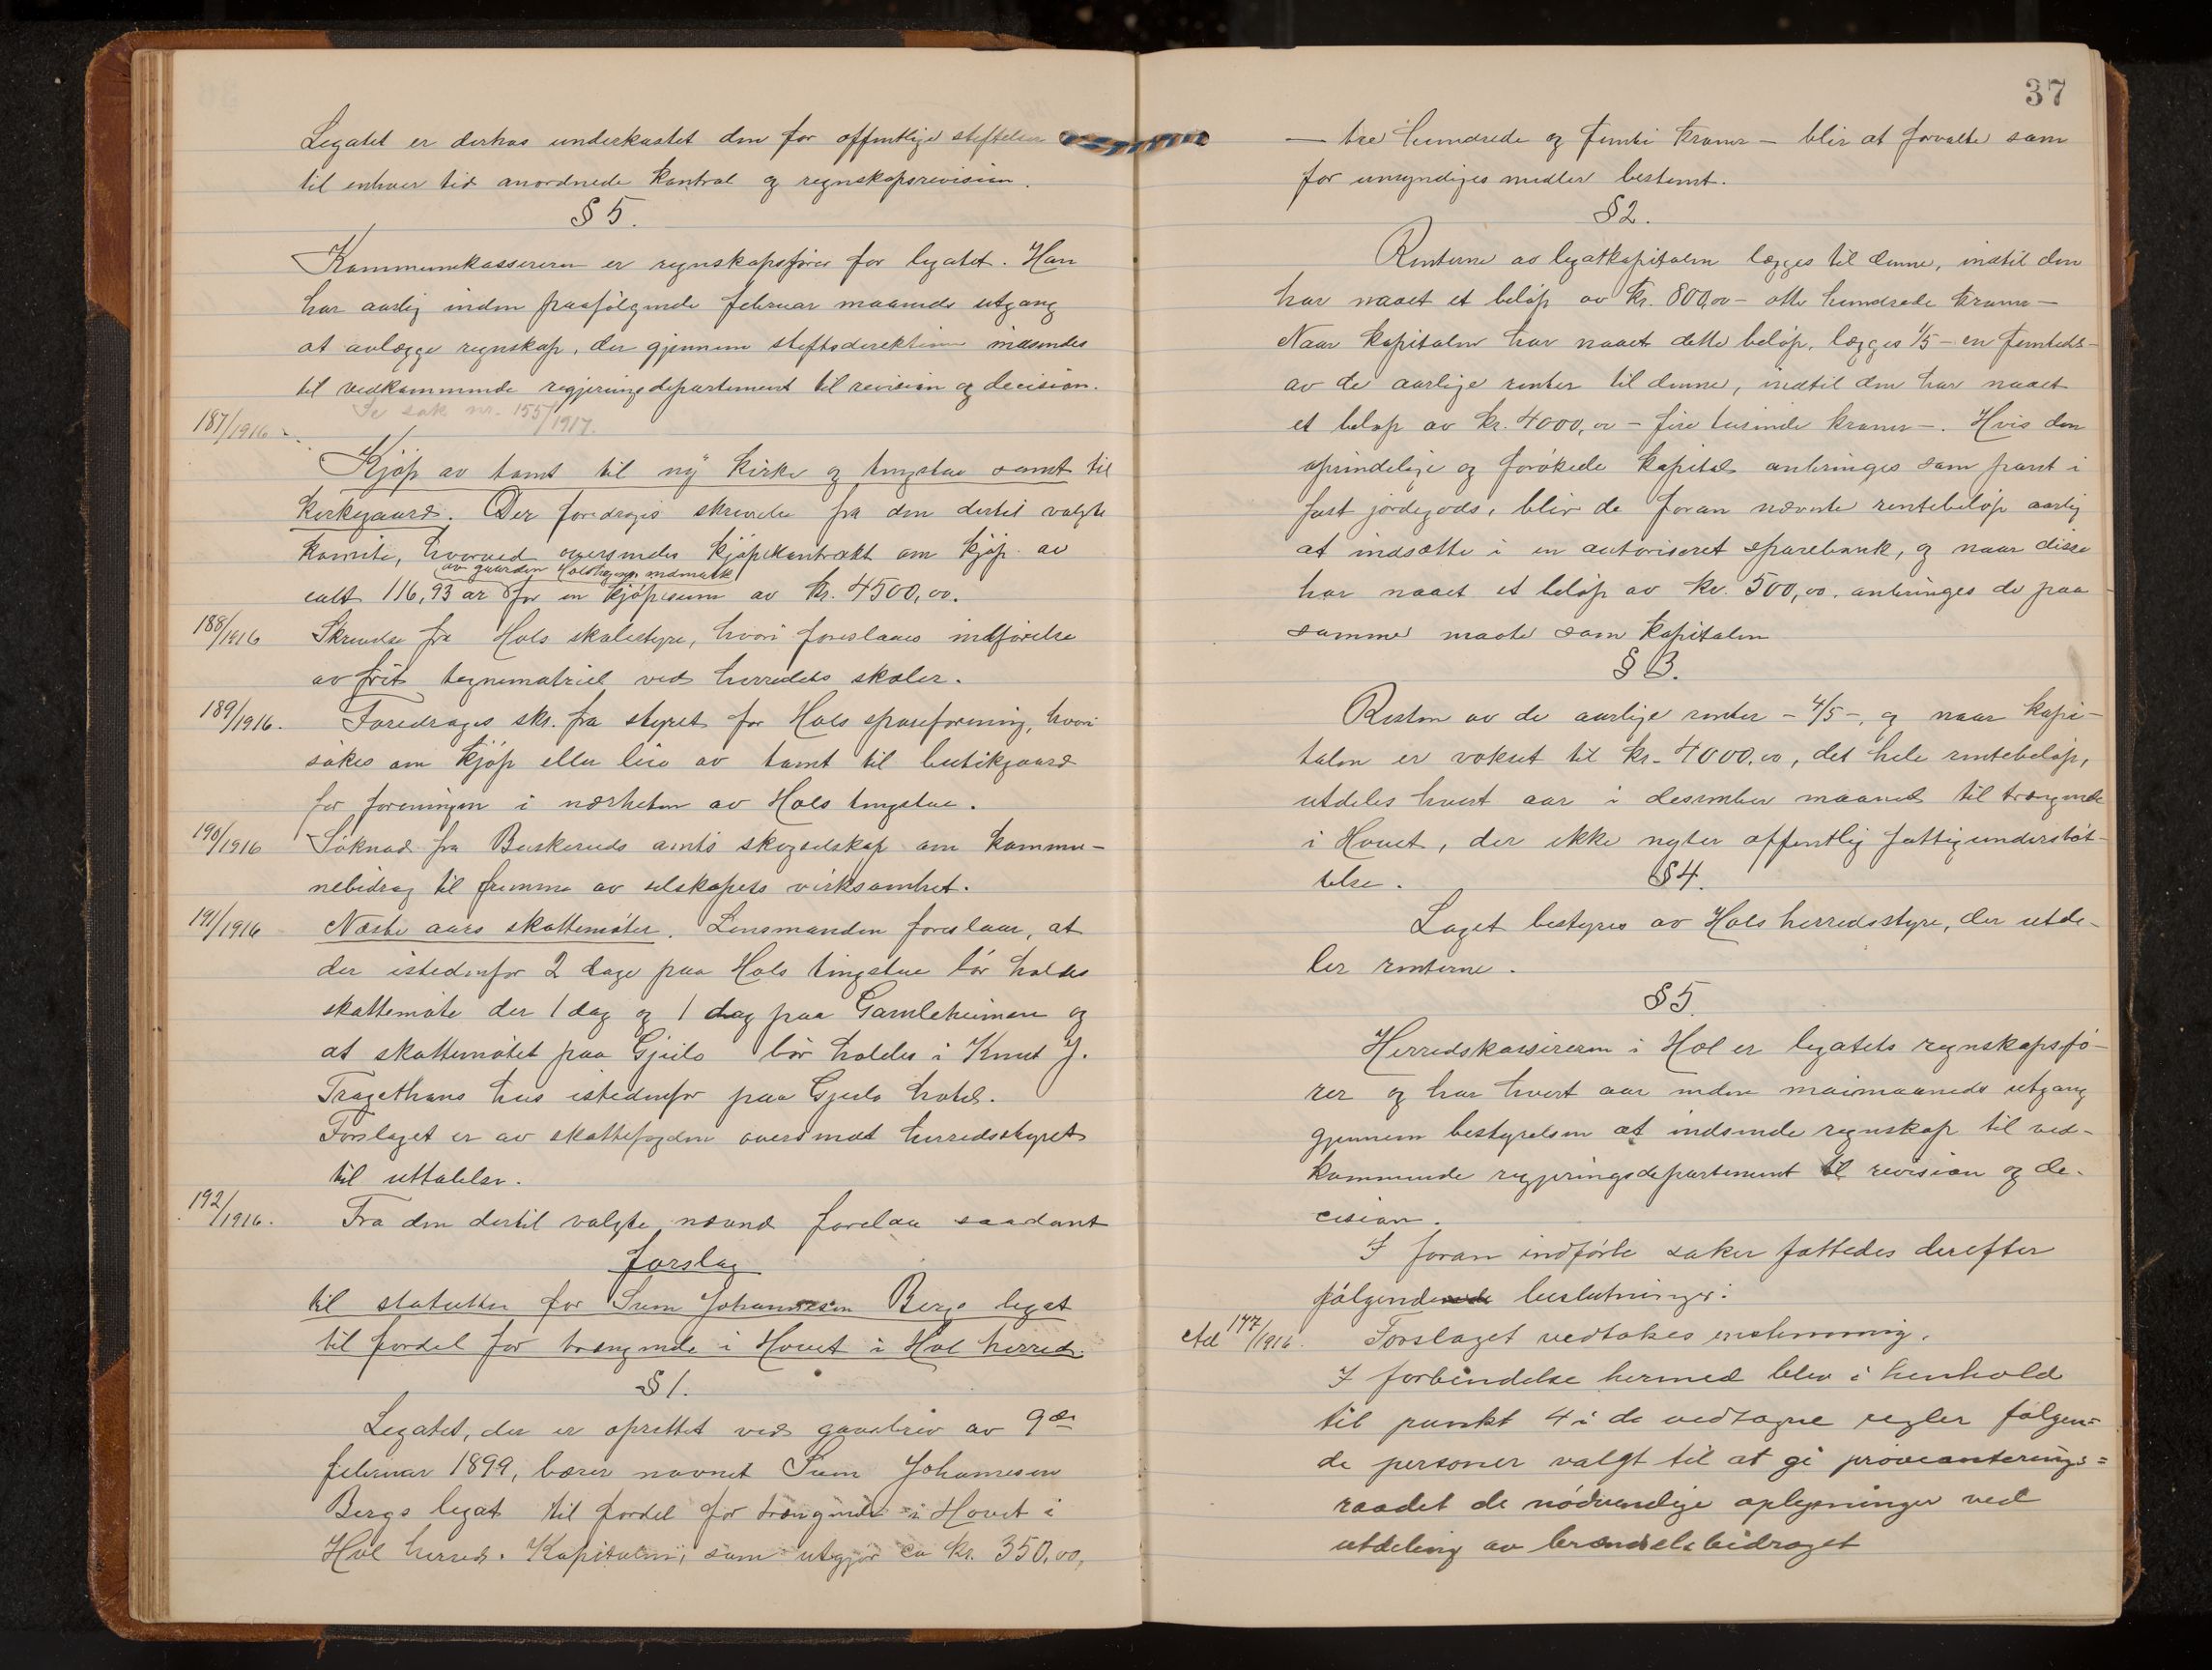 Legatet er derhos underkastet den for offentlige stiftelser
til enhver tid anordnede kontrol og regnskapsrevision.
§ 5.
Kommunekassereren er regnskapsfører for legatet. Han
har aarlig inden paafølgende februar maaneds utgang
at avlægge regnskap, der gjennem stiftsdirektionen indsendes
til vedkommende regjeringsdepartement til revision og decision.
Se sak nr. 155/1917.
187/1916
Kjøp av tomt til ny kirke og tingstue samt til
kirkegaard. Der foredroges skrivelse fra den dertil valgte
komite, hvorved oversendes kjøpekontrakt om kjøp av
av gaarden Holshagens indmark
ialt 116,93 ar for en kjøpesum av kr. 4500,00.
188/1916 Skrivelse fra Hols skolestyre, hvori foreslaaes indførelse
av frit tegnematriel ved herredets skoler.
189/1916. Foredroges skr. fra styret for Hols spareforening, hvori
søkes om kjøp eller leie av tomt til butikgaard
for foreningen i nærheten av Hols tingstue.
190/1916 Søknad fra Buskeruds amts skogselskap om kommu-
nebidrag til fremme av selskapets virksomhet.
191/1916 Næste aars skattemøter. Lensmanden foreslaar, at
der istedenfor 2 dage paa Hols tingstue bør holdes
skattemøte der 1 dag og 1 dag paa Gamleheimen og
at skattemøtet paa Gjeilo bør holdes i Knut J.
Tragethons hus istedenfor paa Gjeilo hotel.
Forslaget er av skattefogden oversendt herredsstyret
til uttalelse.
192/1916. Fra den dertil valgte nævnd forelaa saadant
forslag
til statutter for Svem Johannesen Bergs legat
til fordel for trængende i Hovet i Hol herred.
§ 1.
Legatet, der er oprettet ved gavebrev av 9de
februar 1899, bærer navnet Svem Johannesen
Bergs legat til fordel for trængende i Hovet i
Hol herred. Kapitalen, som utgjør ca kr. 350,00,
37
— tre hundrede og femti kroner — blir at forvalte som
for umyndiges midler bestemt.
§ 2.
Renterne av legatkapitalen lægges til denne, indtil den
har naaet et beløp av kr. 800,00 — otte hundrede kroner —
Naar kapitalen har naaet dette beløp, lægges 1/5 — en femtedel —
av de aarlige renter til denne, indtil den har naaet
et beløp av kr. 4000,00 — fire tusinde kroner —. Hvis den
oprindelige og forøkede kapital anbringes som pant i
fast jordegods, blir de foran nævnte rentebeløp aarlig
at indsætte i en autoriseret sparebank, og naar disse
har naaet et beløp av kr. 500,00, anbringes de paa
samme maate som kapitalen
§ 3.
Resten av de aarlige renter — 4/5 —, og naar kapi-
talen er vokset til kr. 4000,00, det hele rentebeløp,
utdeles hvert aar i desember maaned til trængende
i Hovet, der ikke nyter offentlig fattigunderstøt-
telse.
§ 4.
Laget bestyres av Hols herredsstyre, der utde-
ler renterne.
§ 5.
Herredskassereren i Hol er legatets regnskapsfø-
rer og har hvert aar inden maimaaneds utgang
gjennem bestyrelsen at indsende regnskap til ved-
kommende regjeringsdepartement til revision og de-
cision.
I foran indførte saker fattedes derefter
følgende beslutninger:
Ad 177/1916. Forslaget vedtakes enstemmig.
I forbindelse hermed blev i henhold
til punkt 4 i de vedtagne regler følgen=
de personer valgt til at gi provianterings=
raadet de nødvendige oplysninger ved
utdeling av brændselsbidraget